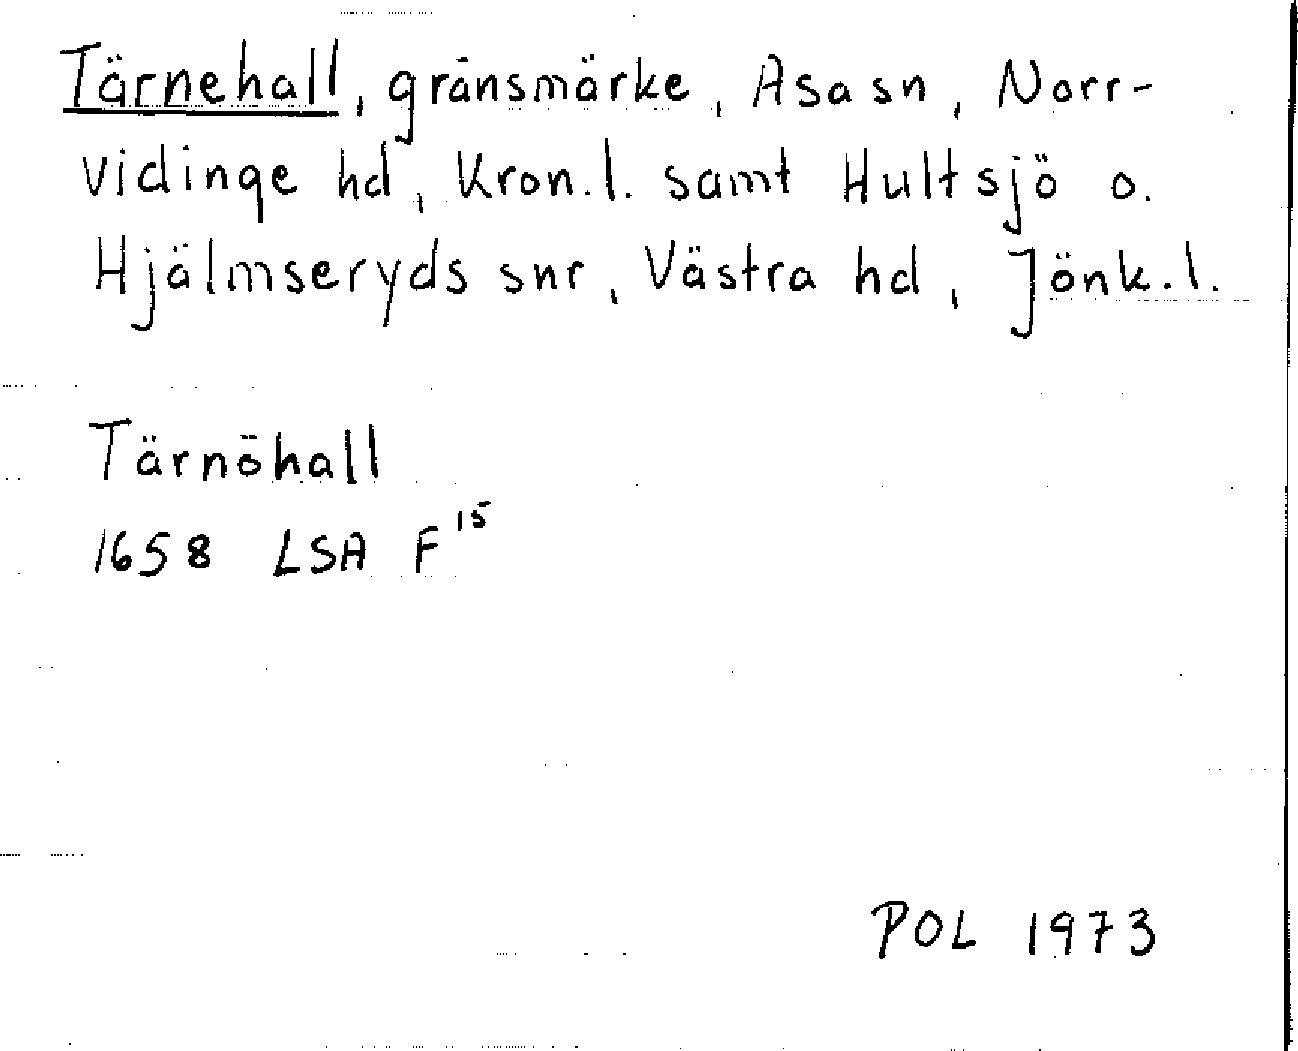 Tärnehall, gränsmärke, Asa sn, Norr-
vidinge hd, Kron.l. samt Hultsjö o.
Hjälmseryds snr, Västra hd, Jönk.l.
Tärnöhall
1658 LSA F¹⁵
POL 1973